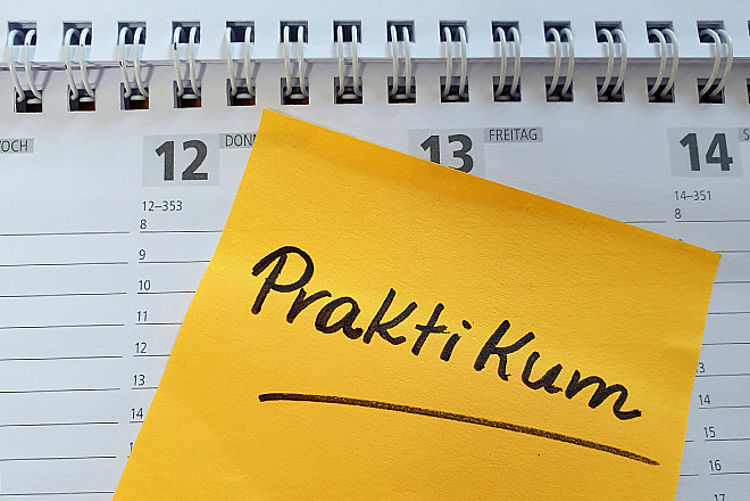 OCH 12 DON 13 FREITAG 14
12–353 14–351
8 8
9
10
11
12
13 3
14 14
15
16
17
Praktikum